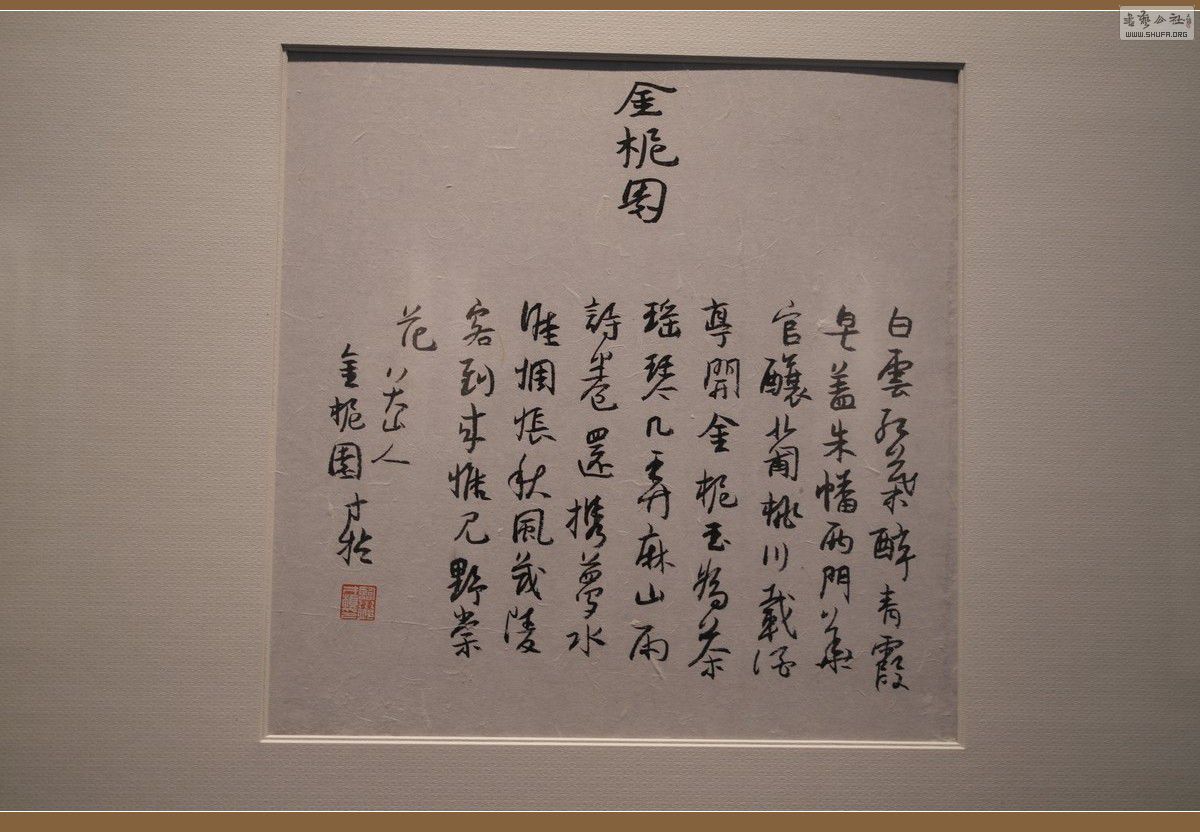 金栀园
白雲紅葉醉青霞
皂蓋朱幡两門
官釀葡桃川載酒
亭開金栀玉為茶
瑶琴几弄麻山雨
詩卷還携夢水
涯惆悵秋風茂陵
客到来惟見野棠
花 八大山人
金栀園
书艺公社
WWW.SHUFA.ORG